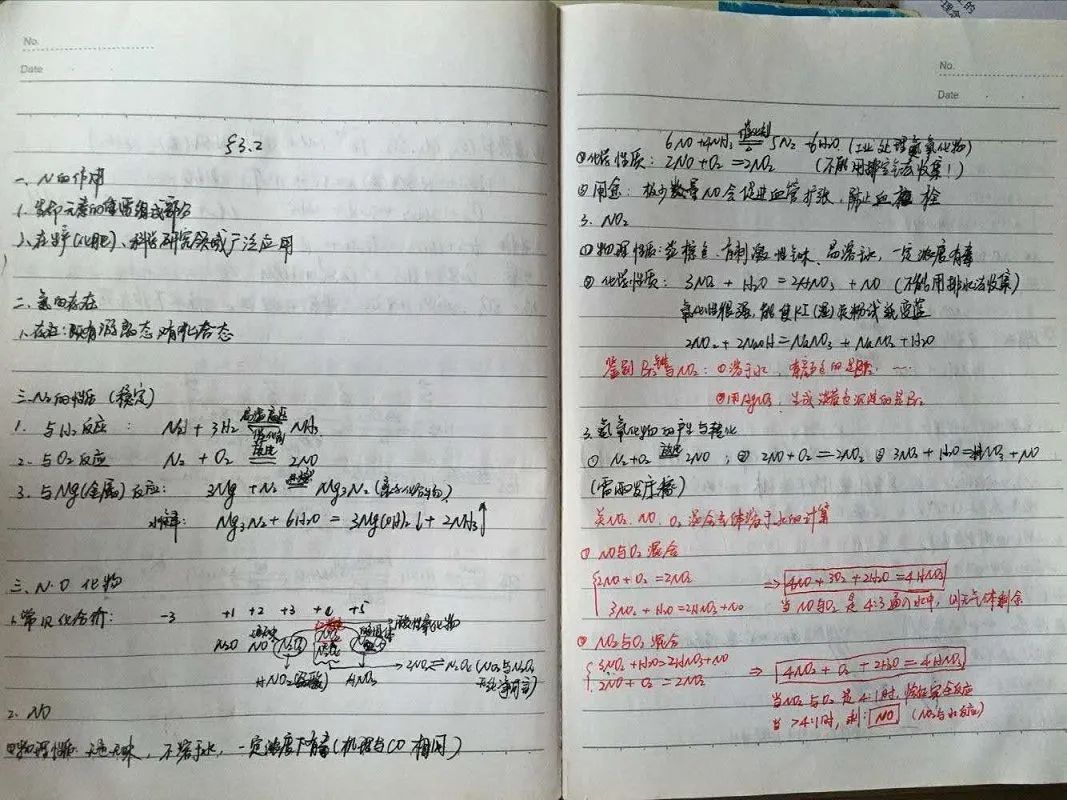 No.
Date
§3.2
一、N的作用
1. 生命元素的重要组成部分
2. 在生产(化肥)、科学研究领域广泛应用
二、氮的存在
1. 存在: 既有游离态,又有化合态
三、N₂的性质 (稳定)
1. 与H₂反应: N₂ + 3H₂ 高温高压 催化剂 NH₃
2. 与O₂反应 N₂ + O₂ 放电 2NO
3. 与Mg(金属)反应: 3Mg + N₂ 点燃 Mg₃N₂ (离子化合物)
水解: Mg₃N₂ + 6H₂O = 3Mg(OH)₂↓ + 2NH₃↑
三、N·O 化物
1. 常见化合价: -3 +1 +2 +3 +4 +5
N₂O NO N₂O₃ 酸性氧化物
HNO₂ HNO₃ 2NO₂ ⇌ N₂O₄ (NO₂与N₂O₄
2. NO
①物理性质: 无色无味, 不溶于水, 一定浓度下有毒(机理与CO相同)
No.
Date
6NO + 4NH₃ 催化剂 5N₂ + 6H₂O (工业处理氮氧化物)
②化学性质: 2NO + O₂ = 2NO₂ (不能用排空气法收集!)
③用途: 极少数量NO会促进血管扩张, 防止血栓
3. NO₂
①物理性质: 红棕色、有刺激性气味、易溶于水, 一定浓度有毒
②化学性质: 3NO₂ + H₂O = 2HNO₃ + NO (不能用排水法收集)
氧化性很强, 能使KI(湿)淀粉试纸变蓝
2NO₂ + 2NaOH = NaNO₃ + NaNO₂ + H₂O
鉴别Br₂与NO₂: ①溶于水, 有颜色的是Br₂, …
②用AgNO₃, 生成淡黄色沉淀的是Br₂
3. 氮氧化物的产生与转化
① N₂+O₂ 放电 2NO ; ② 2NO + O₂ = 2NO₂ ③ 3NO₂ + H₂O = HNO₃ + NO
(雷雨发庄稼)
关NO₂、NO、O₂混合气体溶于水的计算
① NO与O₂混合
2NO + O₂ = 2NO₂ ⇒ 4NO + 3O₂ + 2H₂O = 4HNO₃
3NO₂ + H₂O = 2HNO₃ + NO 当NO与O₂是4:3通入水中, 则无气体剩余
② NO₂与O₂混合
3NO₂ + H₂O = 2HNO₃ + NO ⇒ 4NO₂ + O₂ + 2H₂O = 4HNO₃
2NO + O₂ = 2NO₂
当NO₂与O₂是4:1时, 恰好完全反应
当 >4:1时, 剩: NO (NO₂与水反应)